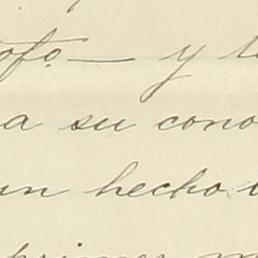 ofo. — y t
a su cono
un hecho